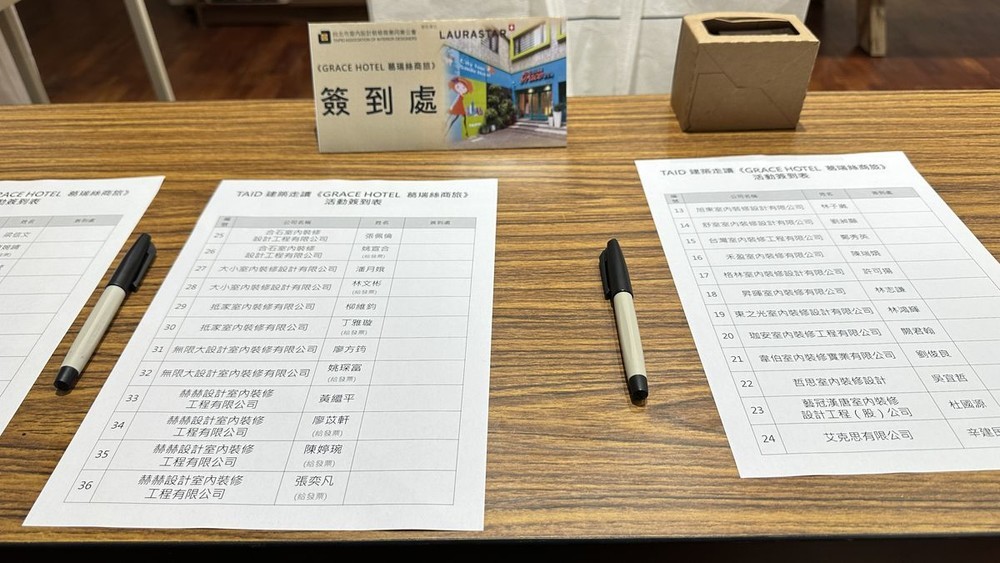 台北市室內設計裝修商業同業公會
TAIPEI ASSOCIATION OF INTERIOR DESIGNERS
LAURASTAR
《GRACE HOTEL 葛瑞絲商旅》
簽到處
姓名 簽到處
TAID 建築走讀《GRACE HOTEL 葛瑞絲商旅》
活動簽到表
編號 公司名稱 姓名 簽到處
25 合石室內裝修設計工程有限公司 張佩倫
26 合石室內裝修設計工程有限公司 姚宜合 (給發票)
27 大小室內裝修設計有限公司 潘月娥
28 大小室內裝修設計有限公司 林文彬 (給發票)
29 抵家室內裝修有限公司 柳維鈞
30 抵家室內裝修有限公司 丁雅璇 (給發票)
31 無限大設計室內裝修有限公司 廖方筠
32 無限大設計室內裝修有限公司 姚琛富 (給發票)
33 赫赫設計室內裝修工程有限公司 黃繼平
34 赫赫設計室內裝修工程有限公司 廖苡軒 (給發票)
35 赫赫設計室內裝修工程有限公司 陳婷琬 (給發票)
36 赫赫設計室內裝修工程有限公司 張奕凡 (給發票)
TAID 建築走讀《GRACE HOTEL 葛瑞絲商旅》
活動簽到表
編號 公司名稱 姓名 簽到處
13 旭東室內裝修設計有限公司 林子
14 室內裝修設計有限公司 劉
15 台灣室內裝修工程有限公司 鄭秀英
16 禾盈室內裝修有限公司 陳瑞娥
17 格林室內裝修設計工程有限公司 許可陽
18 昇暉室內裝修有限公司 林志謙
19 東之光室內裝修設計有限公司 林鴻輝
20 珈安室內裝修工程有限公司 關君翰
21 韋伯室內裝修實業有限公司 劉俊良
22 哲思室內裝修設計 吳宜哲
23 藝冠漢唐室內裝修設計工程(股)公司 杜國源
24 艾克思有限公司 辛建民